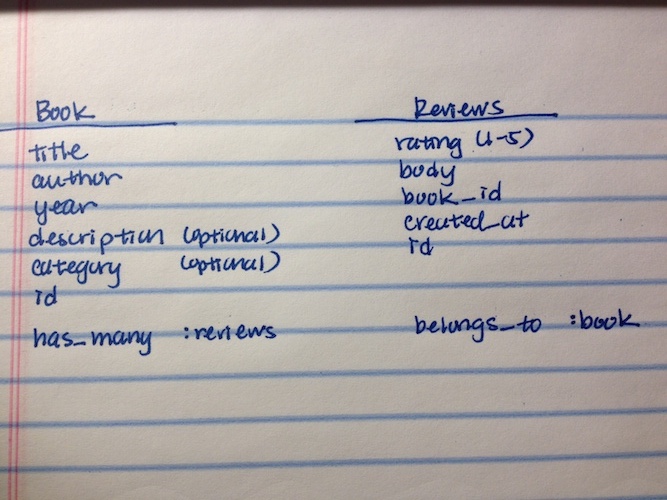 Book
title
author
year
description (optional)
category (optional)
id
has_many :reviews
Reviews
rating (1-5)
body
book_id
created_at
id
belongs_to :book